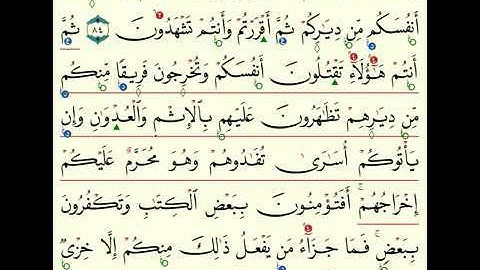 أَنفُسَكُم مِّن دِيَٰرِكُمْ ثُمَّ أَقْرَرْتُمْ وَأَنتُمْ تَشْهَدُونَ ٨٤ ثُمَّ
أَنتُمْ هَٰٓؤُلَآءِ تَقْتُلُونَ أَنفُسَكُمْ وَتُخْرِجُونَ فَرِيقًا مِّنكُم
مِّن دِيَٰرِهِمْ تَظَٰهَرُونَ عَلَيْهِم بِٱلْإِثْمِ وَٱلْعُدْوَٰنِ وَإِن
يَأْتُوكُمْ أُسَٰرَىٰ تُفَٰدُوهُمْ وَهُوَ مُحَرَّمٌ عَلَيْكُمْ
إِخْرَاجُهُمْ ۚ أَفَتُؤْمِنُونَ بِبَعْضِ ٱلْكِتَٰبِ وَتَكْفُرُونَ
بِبَعْضٍ ۚ فَمَا جَزَآءُ مَن يَفْعَلُ ذَٰلِكَ مِنكُمْ إِلَّا خِزْىٌ